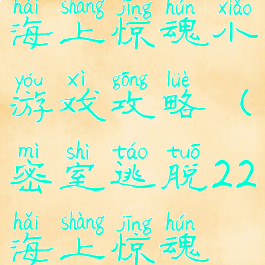 hǎi shàng jīng hún xiǎo
海上惊魂小
yóu xì gōng lüè
游戏攻略（
mì shì táo tuō
密室逃脱22
hǎi shàng jīng hún
海上惊魂